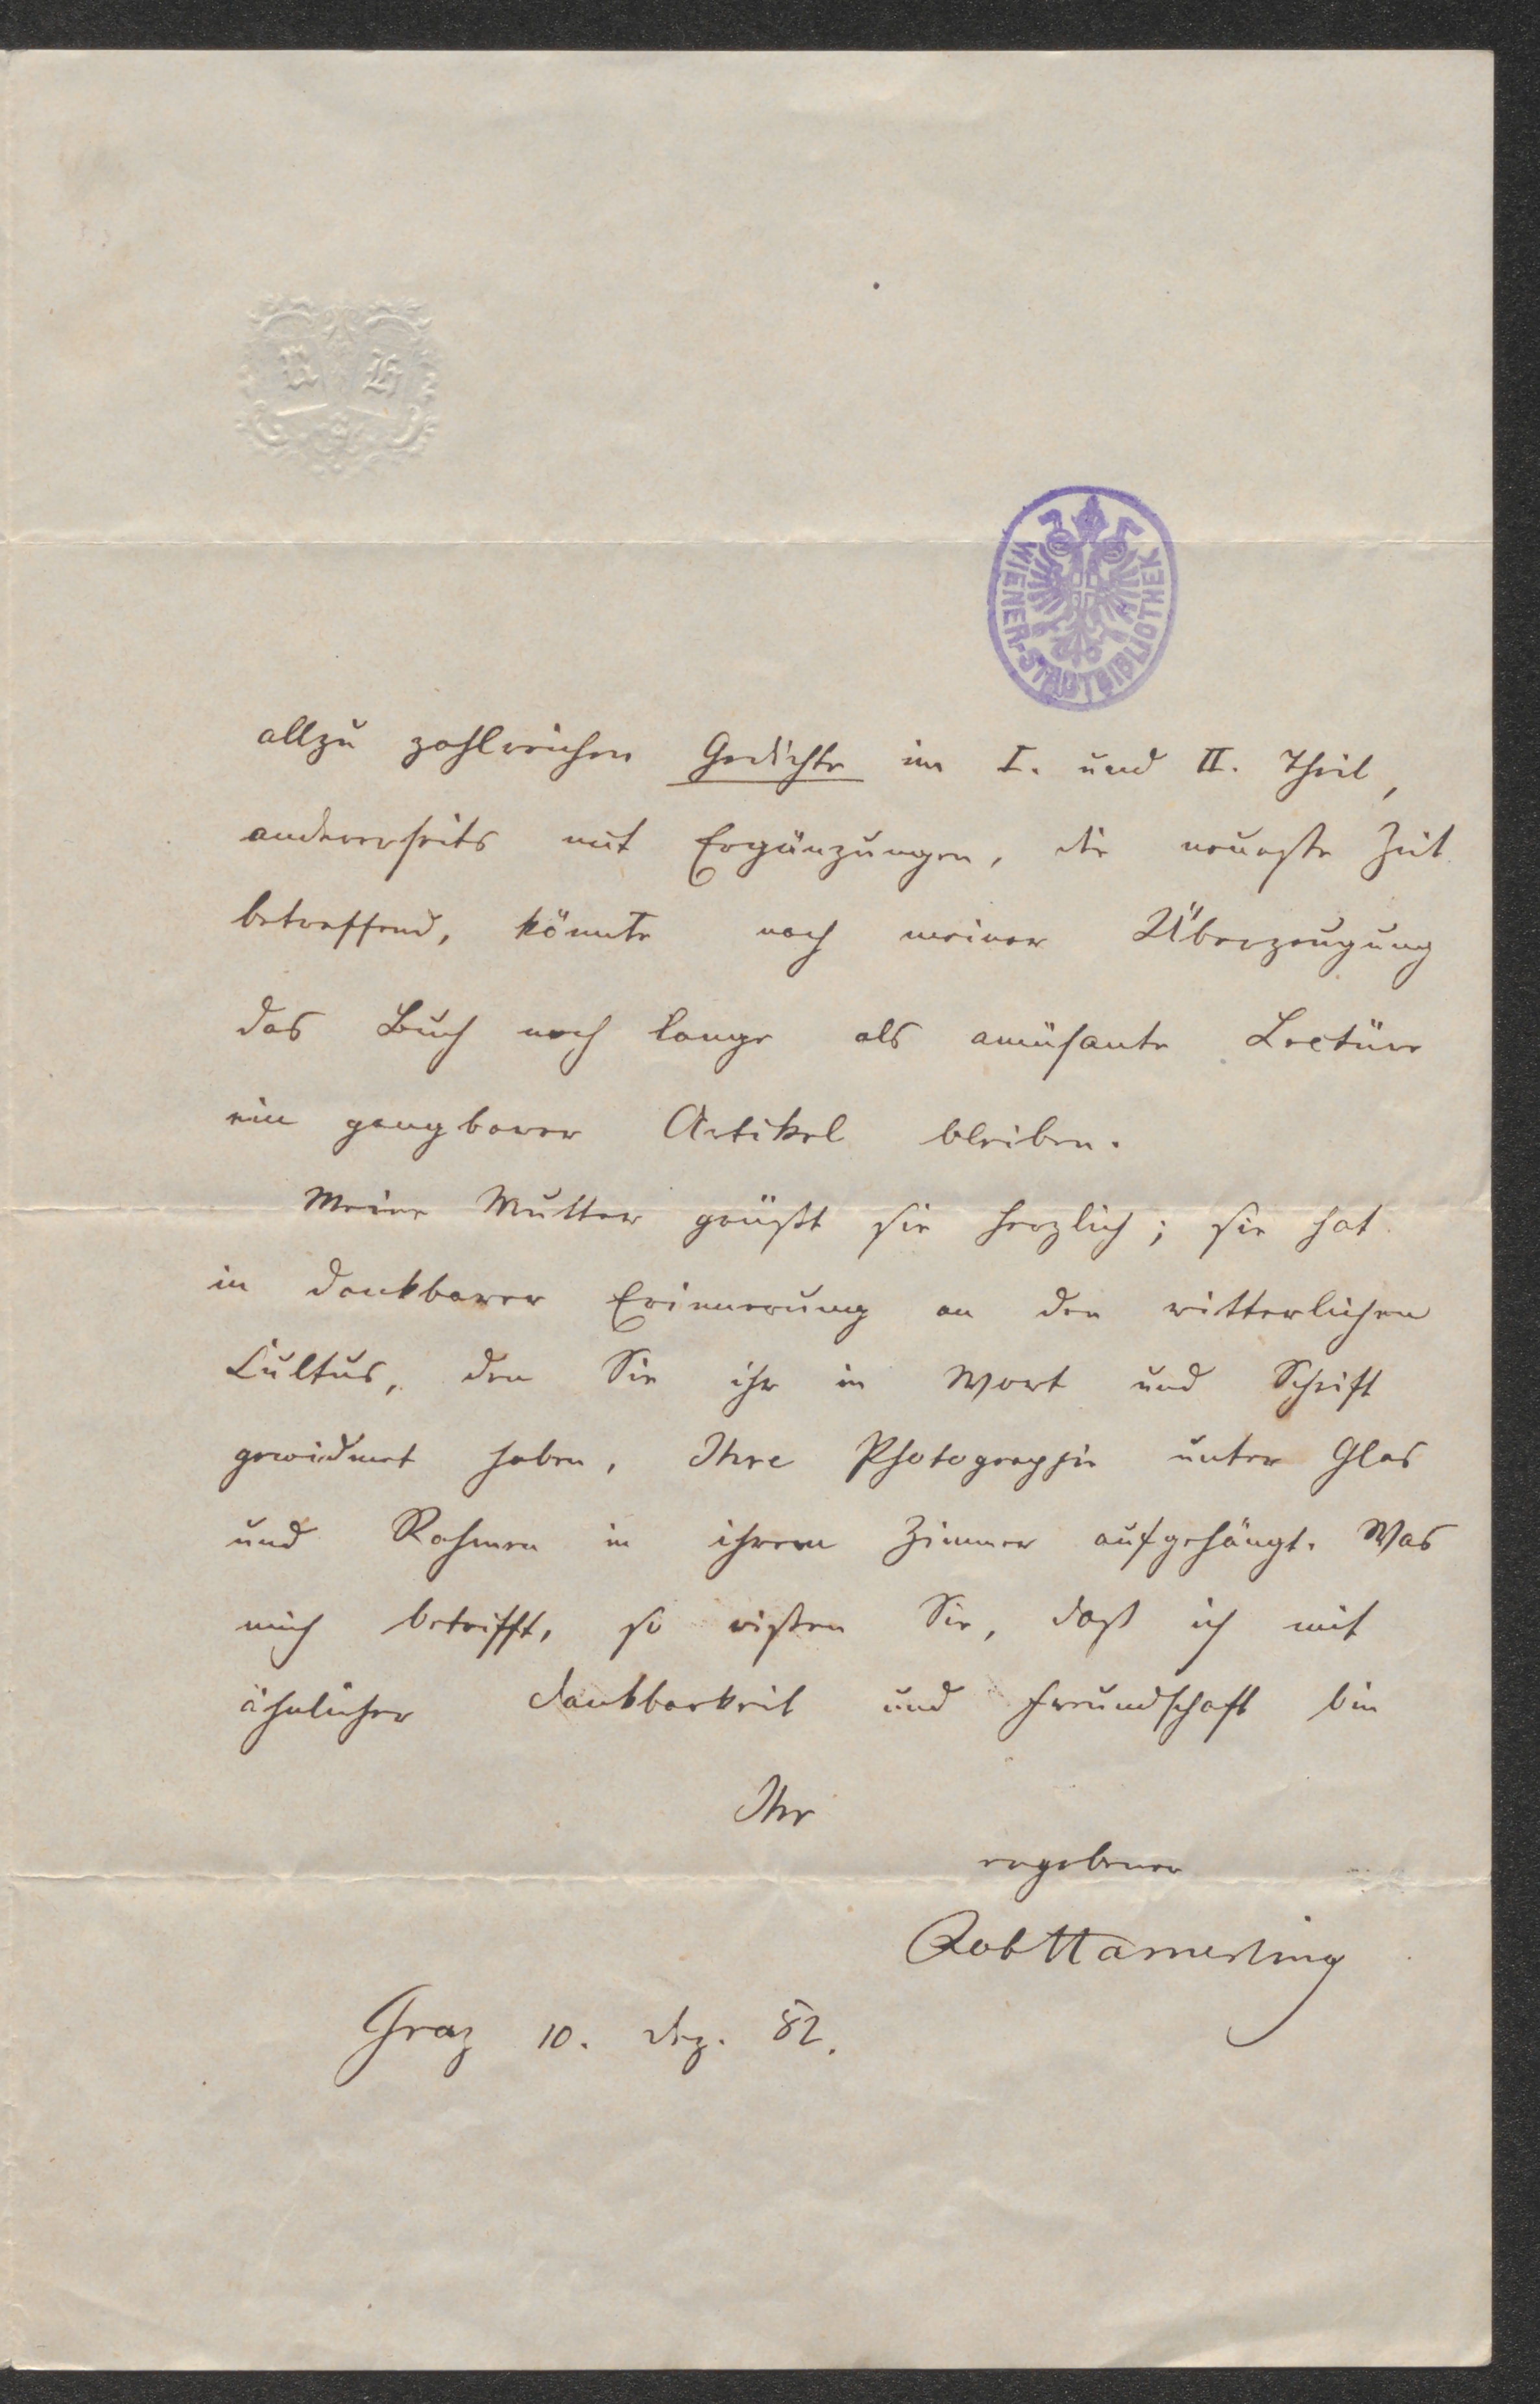 R H
WIENER-STADTBIBLIOTHEK
allzu zahlreichen Gedichte im I. und II. Theil,
andererseits mit Ergänzungen, die neueste Zeit
betreffend, könnte nach meiner Überzeugung
das Buch noch lange als amüsante Lectüre
ein gangbarer Artikel bleiben.
Meine Mutter grüßt sie herzlich; sie hat
in dankbarer Erinnerung an den ritterlichen
Cultus, den Sie ihr in Wort und Schrift
gewidmet haben, Ihre Photographie unter Glas
und Rahmen in ihrem Zimmer aufgehängt. Was
mich betrifft, so wißen Sie, daß ich mit
ähnlicher Dankbarkeit und Freundschaft bin
Ihr
ergebener
Rob Hamerling
Graz 10. Dez. 82.